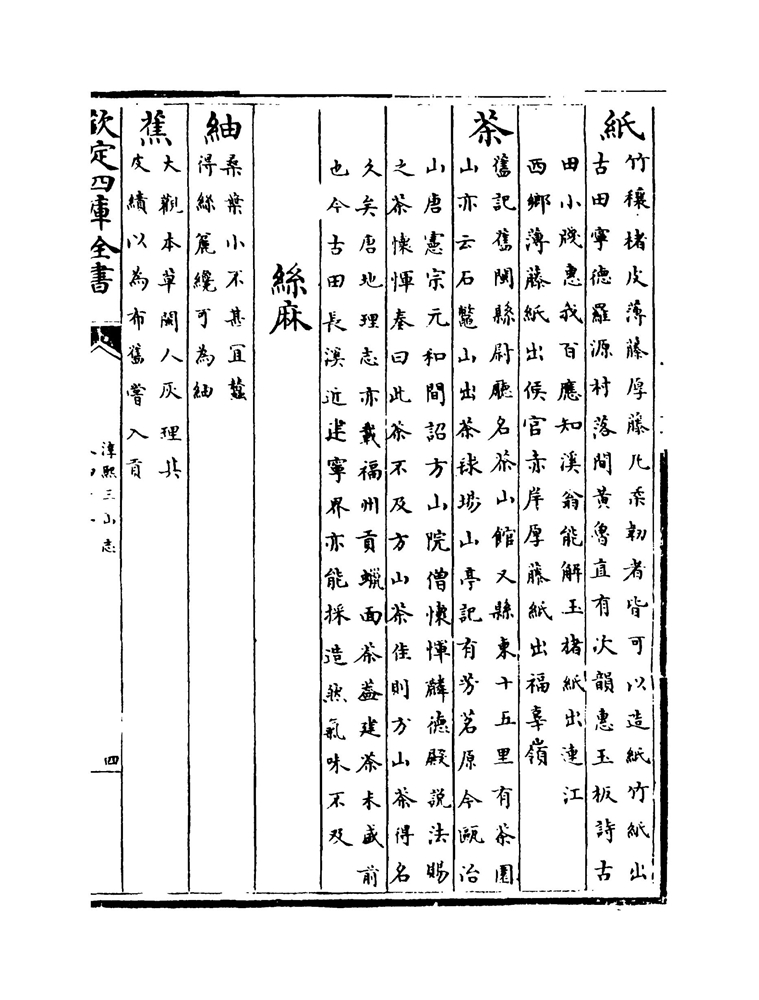 紙
竹穰楮皮薄藤厚藤凡柔韌者皆可以造紙竹紙出
古田寧德羅源村落間黃魯直有次韻惠玉板詩古
田小牋惠我百應知溪翁能解玉楮紙出連江
西鄉薄藤紙出侯官赤岸厚藤紙出福辜嶺
茶
舊記舊閩縣尉廳名茶山館又縣東十五里有茶園
山亦云石鼈山出茶毬塲山亭記有芳茗原今甌冶
山唐憲宗元和間詔方山院僧懷惲麟德殿説法賜
之茶懷惲奏曰此茶不及方山茶佳則方山茶得名
久矣唐地理志亦載福州貢蠟面茶葢建茶未盛前
也今古田長溪近建寧界亦能採造然氣味不及
絲麻
紬
桑葉小不甚宜蠶
得絲麄纔可為紬
蕉
大觀本草閩人灰理其
皮績以為布舊嘗入貢
欽定四庫全書
淳熙三山志
四